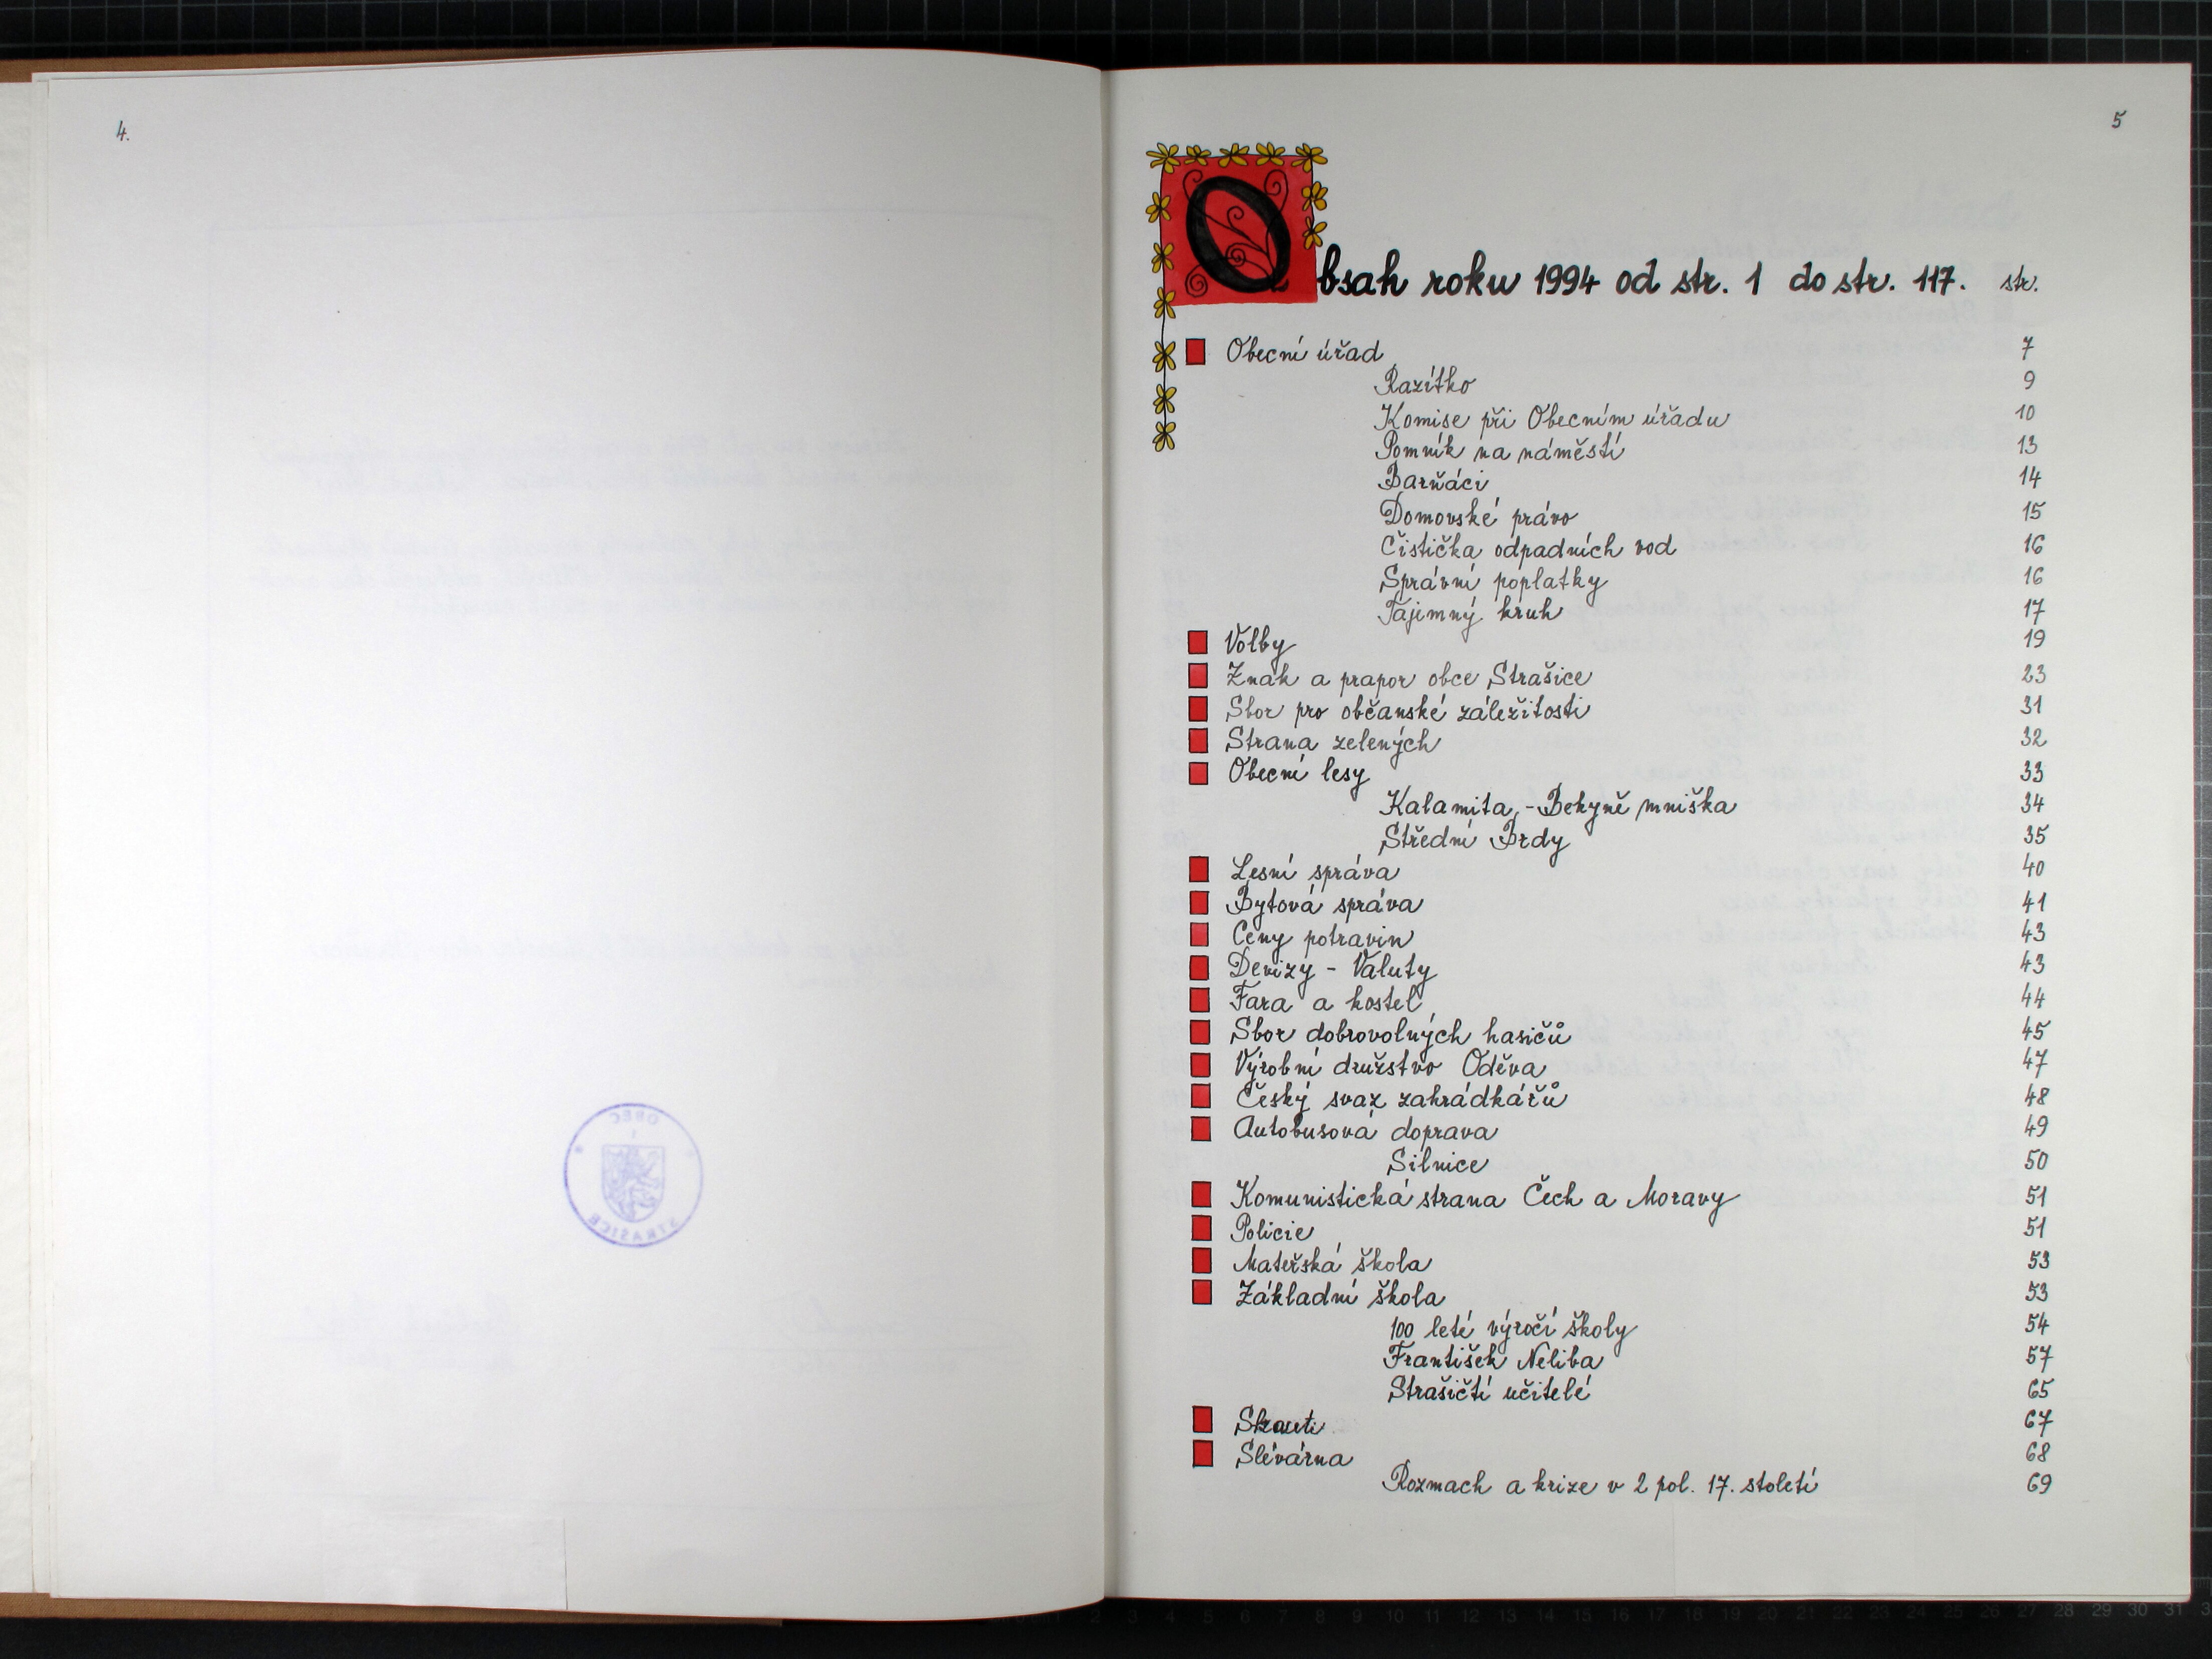 4.
5
Obsah roku 1994 od str. 1 do str. 117. str.
Obecní úřad 7
Razítko 9
Komise při Obecním úřadu 10
Pomník na náměstí 13
Barňáci 14
Domovské právo 15
Čistička odpadních vod 16
Správní poplatky 16
Tajemný kruh 17
Volby 19
Znak a prapor obce Strašice 23
Sbor pro občanské záležitosti 31
Strana zelených 32
Obecní lesy 33
Kalamita - Bekyně mniška 34
Střední Brdy 35
Lesní správa 40
Bytová správa 41
Ceny potravin 43
Devizy - Valuty 43
Fara a kostel 44
Sbor dobrovolných hasičů 45
Výrobní družstvo Oděva 47
Český svaz zahrádkářů 48
Autobusová doprava 49
Silnice 50
Komunistická strana Čech a Moravy 51
Policie 51
Mateřská škola 53
Základní škola 53
100 leté výročí školy 54
František Neliba 57
Strašičtí učitelé 65
Skauti 67
Slévárna 68
Rozmach a krize v 2 pol. 17. století 69
OBEC
STRAŠICE
2 3 4 5 6 7 8 9 10 11 12 13 14 15 16 17 18 19 20 21 22 23 24 25 26 27 28 29 30 31